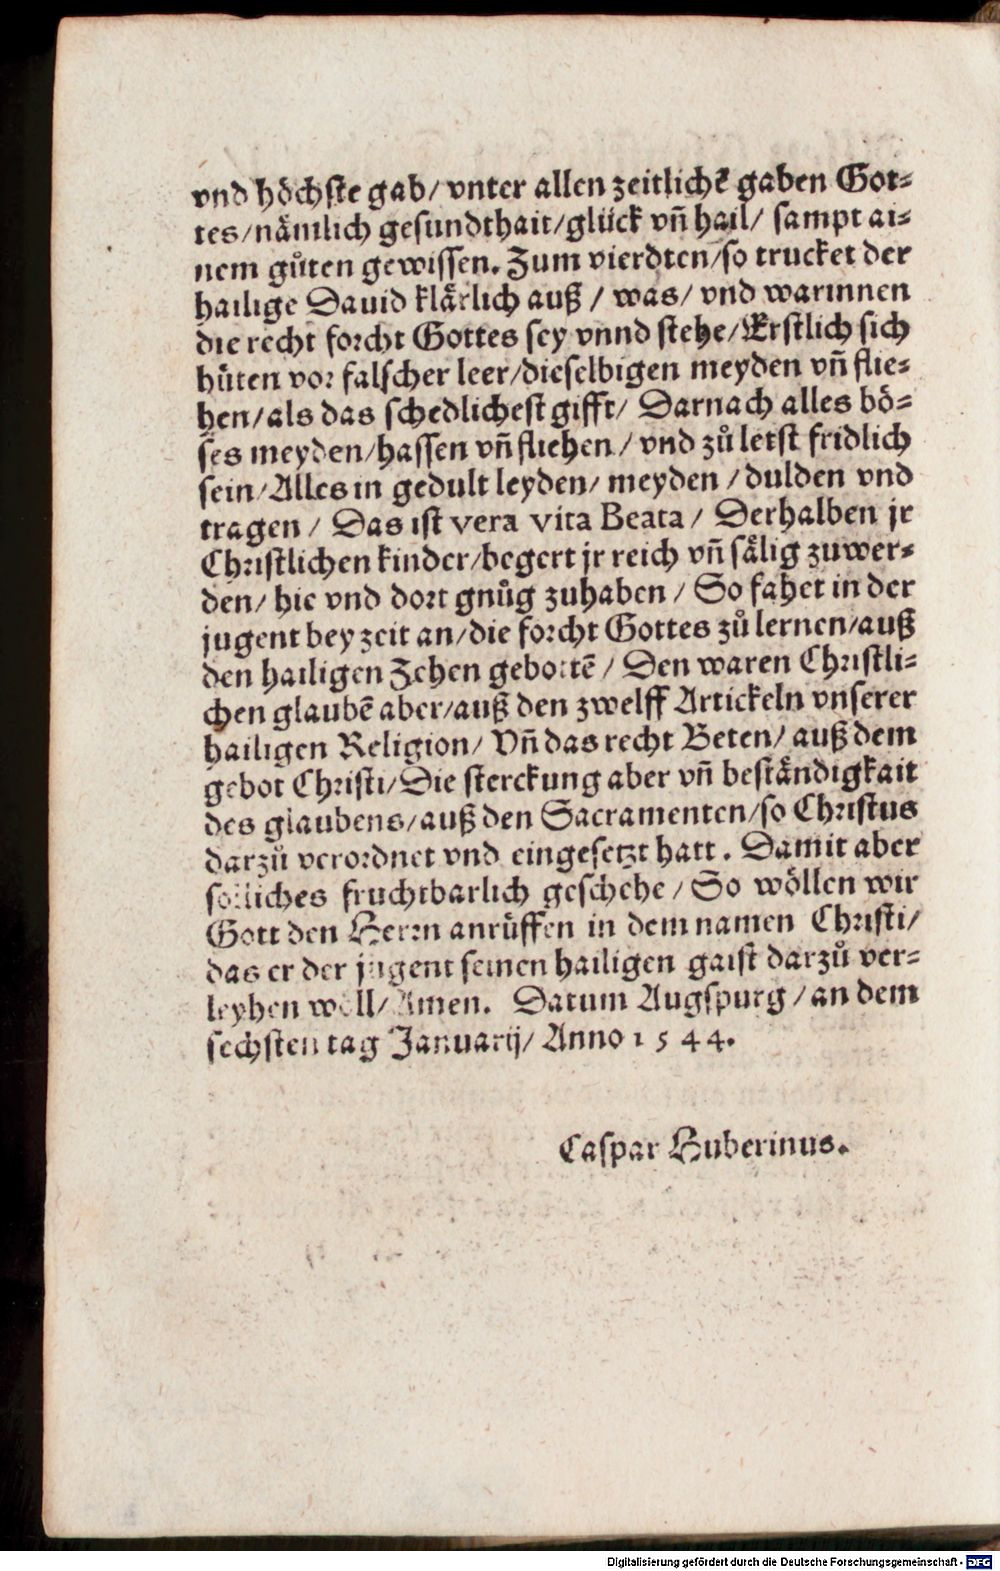 vnd höchste gab/ vnter allen zeitlichẽ gaben Got-
tes/nämlich gesundthait/glück vñ hail/ sampt ai-
nem gůten gewissen. Zum vierdten/so trucket der
hailige Dauid klärlich auß / was/ vnd warinnen
die recht forcht Gottes sey vnnd stehe/Erstlich sich
hüten vor falscher leer/dieselbigen meyden vñ flie-
hen/als das schedlichest gifft/ Darnach alles bö-
ses meyden/hassen vñ fliehen/ vnd zů letst fridlich
sein/Alles in gedult leyden/ meyden /dulden vnd
tragen / Das ist vera vita Beata / Derhalben jr
Christlichen kinder/begert jr reich vñ sälig zuwer-
den/ hie vnd dort gnůg zuhaben / So fahet in der
jugent bey zeit an/die forcht Gottes zů lernen/auß
den hailigen Zehen gebottẽ / Den waren Christli-
chen glaubẽ aber/auß den zwelff Artickeln vnserer
hailigen Religion/ Vñ das recht Beten/ auß dem
gebot Christi/Die sterckung aber vñ beständigkait
des glaubens/auß den Sacramenten/so Christus
darzů verordnet vnd eingesetzt hatt. Damit aber
solliches fruchtbarlich geschehe/ So wöllen wir
Gott den Herrn anrüffen in dem namen Christi/
das er der jugent seinen hailigen gaist darzů ver-
leyhen wöll/Amen. Datum Augspurg /an dem
sechsten tag Januarij/ Anno 1544.
Caspar Huberinus.
Digitalisierung gefördert durch die Deutsche Forschungsgemeinschaft - DFG